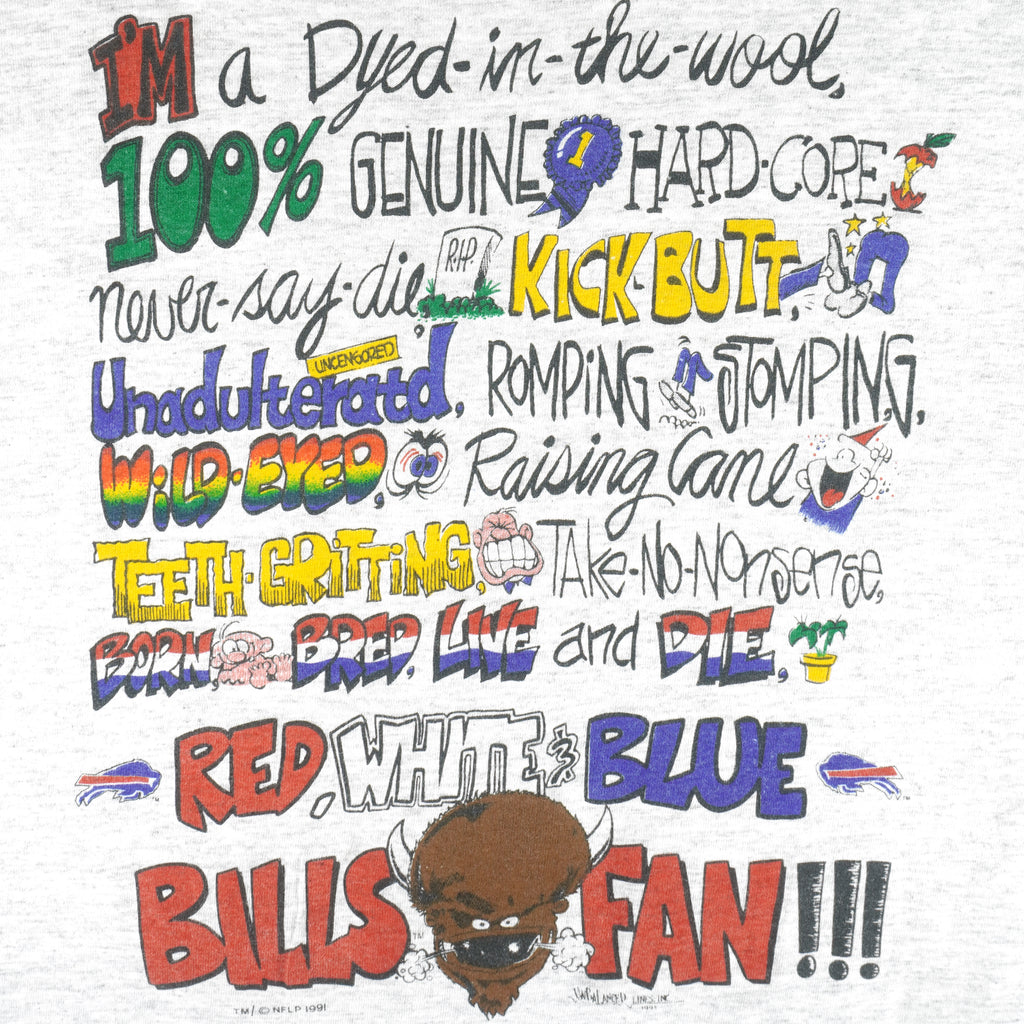 I'M a Dyed-in-the-wool,
100% GENUINE 1 HARD-CORE
never-say-die, R.I.P. KICK-BUTT,
UNCENSORED
Unadulteratd, ROMPING STOMPING,
WILD-EYED, Raising Cane
TEETH-GRITTING, TAKE-NO-NONSENSE,
BORN, BRED, LIVE and DIE,
RED, WHITE & BLUE
BILLS FAN!!!
TM/©NFLP 1991
UNBALANCED LINES, INC.
1991